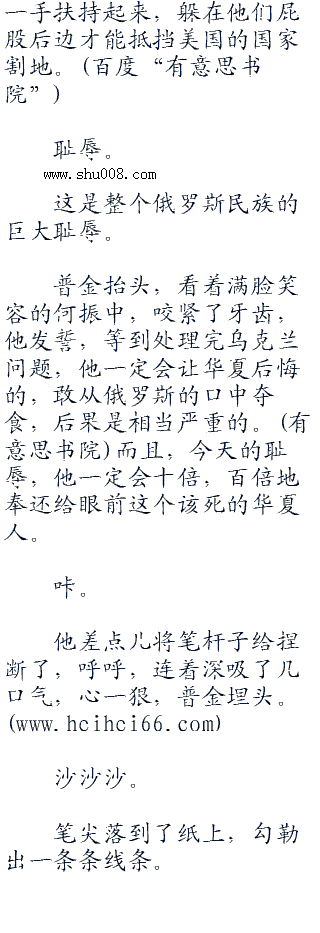 一手扶持起来，躲在他们屁
股后边才能抵挡美国的国家
割地。(百度“有意思书
院”)
耻辱。
www.shu008.com
这是整个俄罗斯民族的
巨大耻辱。
普金抬头，看着满脸笑
容的何振中，咬紧了牙齿，
他发誓，等到处理完乌克兰
问题，他一定会让华夏后悔
的，敢从俄罗斯的口中夺
食，后果是相当严重的。(有
意思书院)而且，今天的耻
辱，他一定会十倍，百倍地
奉还给眼前这个该死的华夏
人。
咔。
他差点儿将笔杆子给捏
断了，呼呼，连着深吸了几
口气，心一狠，普金埋头。
(www.hcihci66.com)
沙沙沙。
笔尖落到了纸上，勾勒
出一条条线条。